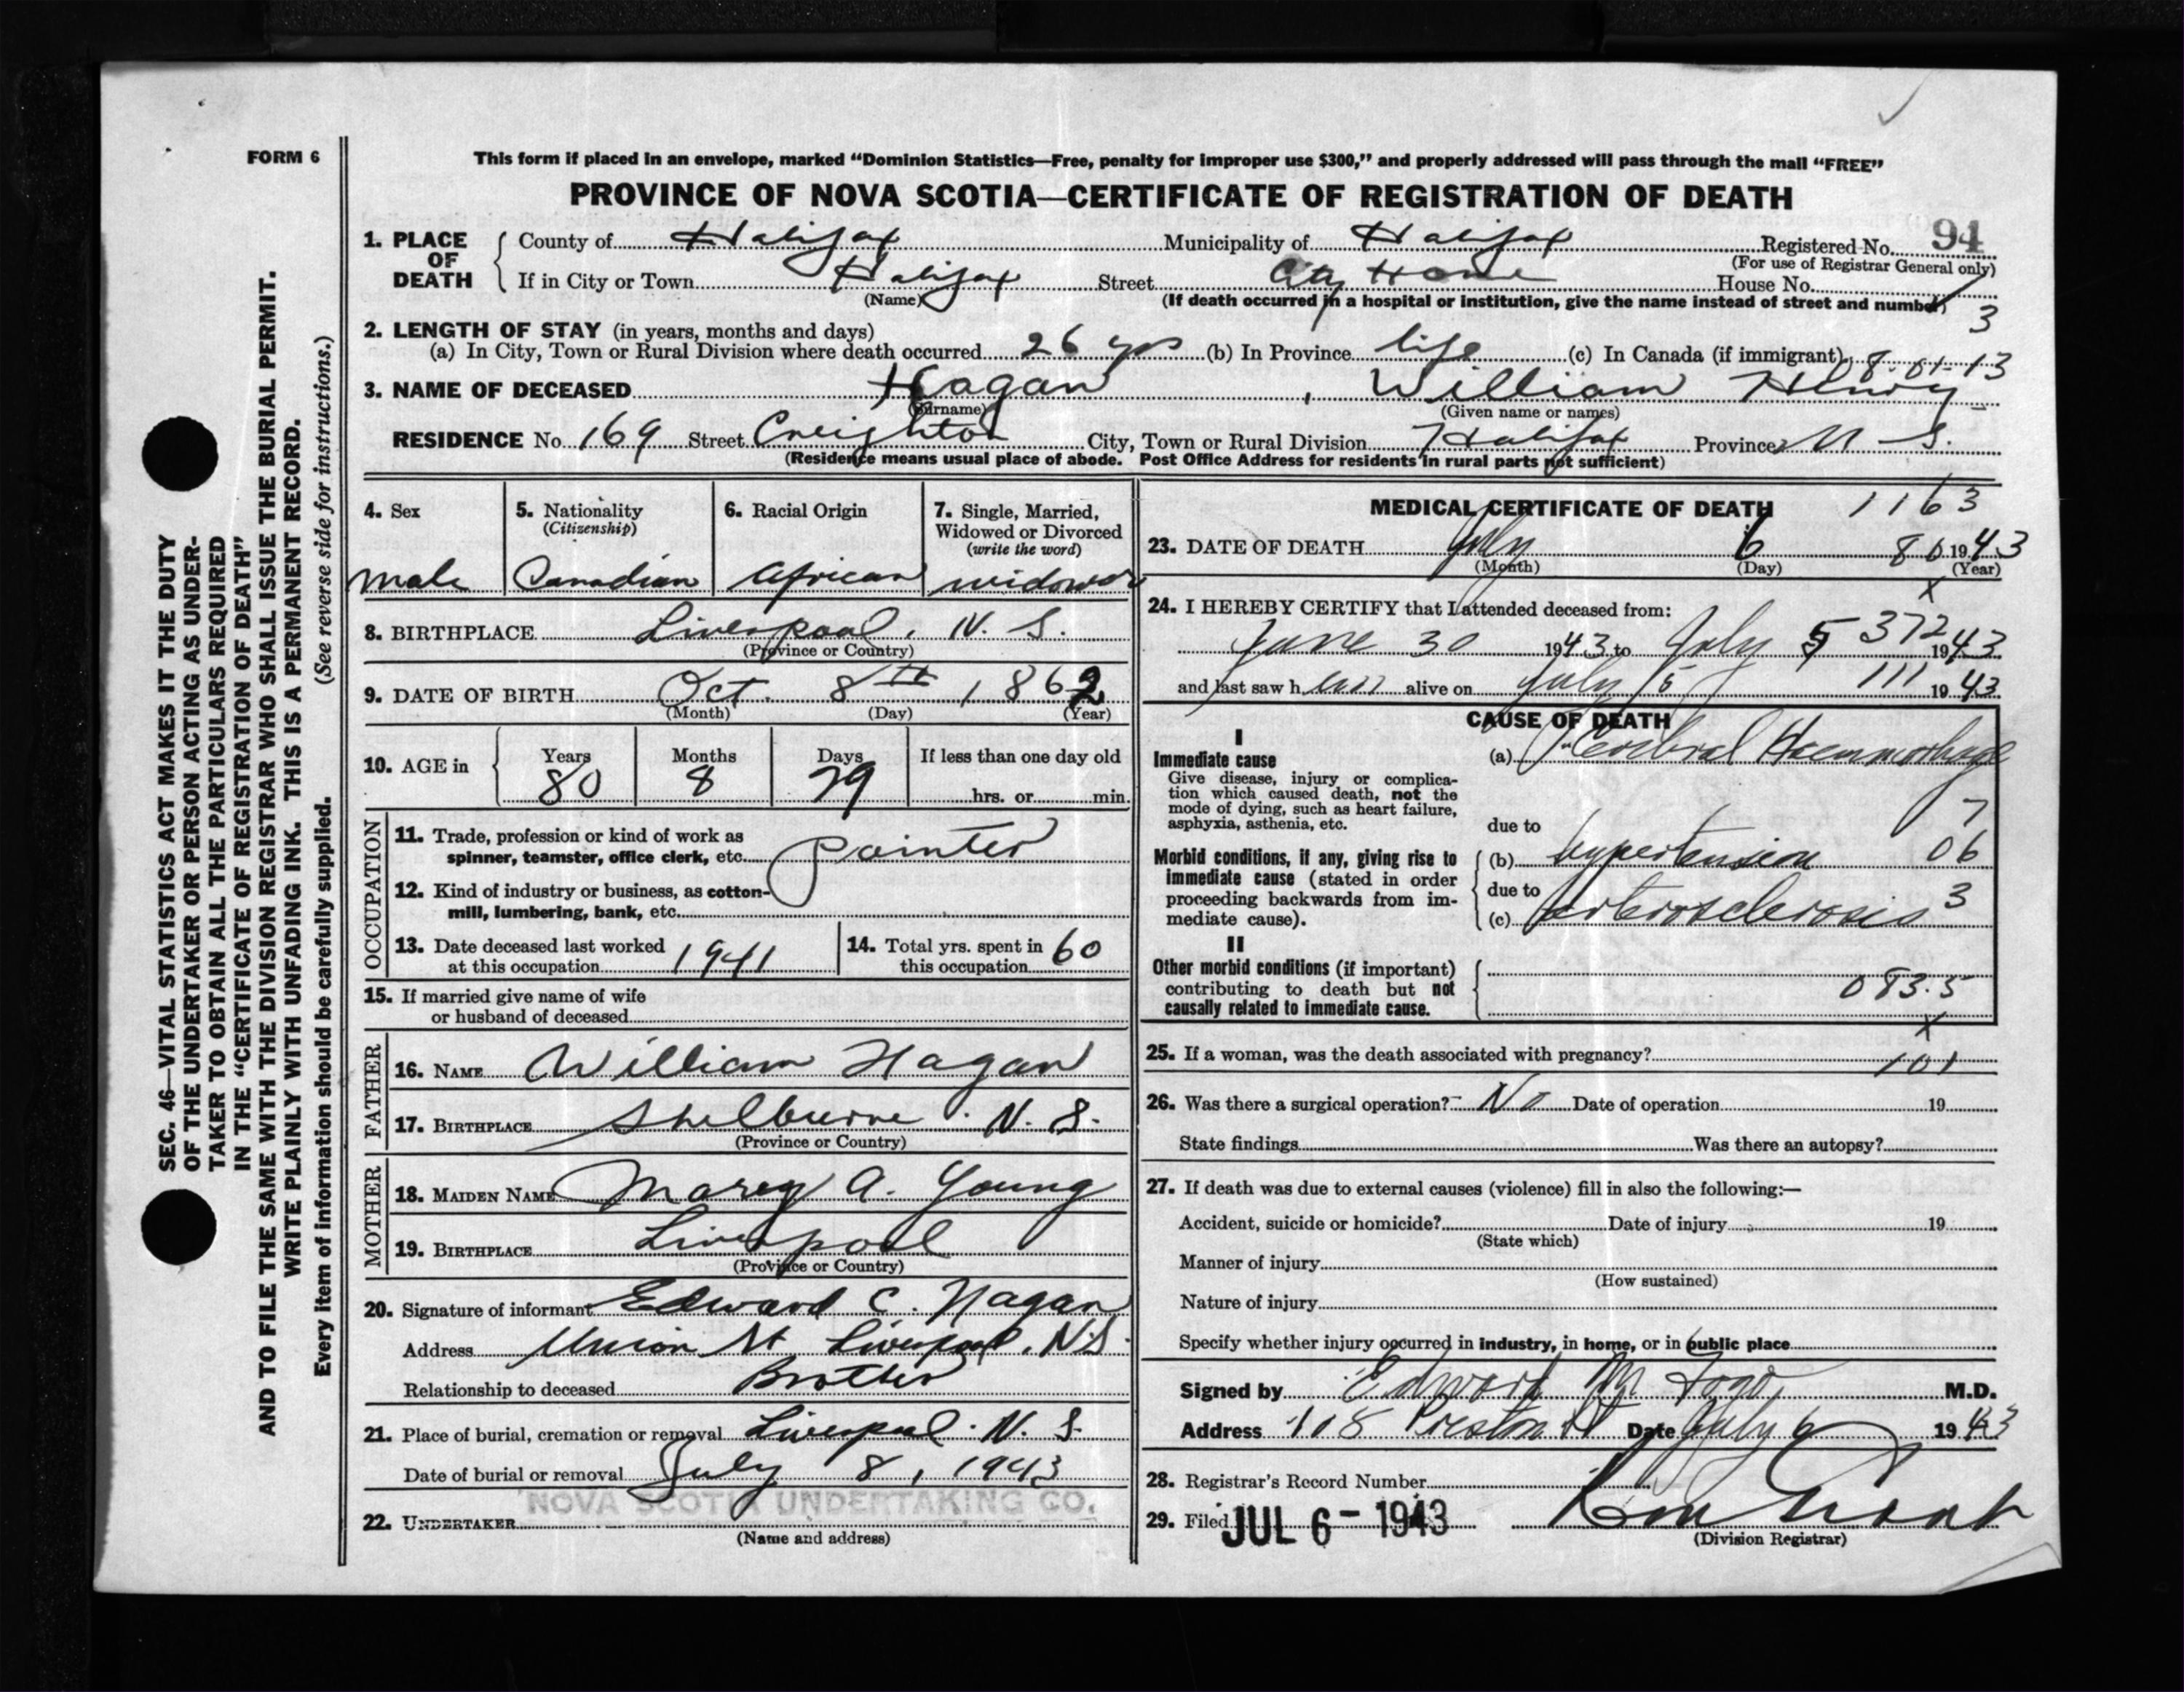 FORM 6
This form if placed in an envelope, marked “Dominion Statistics—Free, penalty for improper use $300,” and properly addressed will pass through the mail “FREE”
PROVINCE OF NOVA SCOTIA—CERTIFICATE OF REGISTRATION OF DEATH
1. PLACE OF DEATH
County of Halifax Municipality of Halifax Registered No. 94
(For use of Registrar General only)
If in City or Town Halifax Street City Home House No.
(Name) (If death occurred in a hospital or institution, give the name instead of street and number)
3
2. LENGTH OF STAY (in years, months and days)
(a) In City, Town or Rural Division where death occurred 26 yrs (b) In Province life (c) In Canada (if immigrant) 8-01-13
3. NAME OF DECEASED Hagan, William Henry
(Surname) (Given name or names)
RESIDENCE No. 169 Street Creighton City, Town or Rural Division Halifax Province N-S.
(Residence means usual place of abode. Post Office Address for residents in rural parts not sufficient)
4. Sex
male
5. Nationality
(Citizenship)
Canadian
6. Racial Origin
African
7. Single, Married,
Widowed or Divorced
(write the word)
widower
8. BIRTHPLACE Liverpool, N. S.
(Province or Country)
9. DATE OF BIRTH Oct. 8th, 1862
(Month) (Day) (Year)
10. AGE in
Years Months Days If less than one day old
80 8 29 hrs. or min.
OCCUPATION
11. Trade, profession or kind of work as
spinner, teamster, office clerk, etc. Painter
12. Kind of industry or business, as cotton-
mill, lumbering, bank, etc.
13. Date deceased last worked
at this occupation 1941
14. Total yrs. spent in
this occupation 60
15. If married give name of wife
or husband of deceased
FATHER
16. NAME William Hagan
17. BIRTHPLACE Shelburne. N. S.
(Province or Country)
MOTHER
18. MAIDEN NAME Mary A. Young
19. BIRTHPLACE Liverpool
(Province or Country)
20. Signature of informant Edward C. Hagan
Address Union St. Liverpool, N.S.
Relationship to deceased Brother
21. Place of burial, cremation or removal Liverpool. N. S.
Date of burial or removal July 8, 1943
NOVA SCOTIA UNDERTAKING CO.
22. UNDERTAKER
(Name and address)
MEDICAL CERTIFICATE OF DEATH 1163
23. DATE OF DEATH July 6 80 1943
(Month) (Day) (Year)
x
24. I HEREBY CERTIFY that I attended deceased from:
June 30 1943 to July 5 372 1943
and last saw him alive on July 5 111 1943
CAUSE OF DEATH
I
Immediate cause
Give disease, injury or complica-
tion which caused death, not the
mode of dying, such as heart failure,
asphyxia, asthenia, etc.
(a) Cerebral Haemorrhage
7
due to
Morbid conditions, if any, giving rise to
immediate cause (stated in order
proceeding backwards from im-
mediate cause).
(b) hypertension 06
due to
(c) arteriosclerosis 3
II
Other morbid conditions (if important)
contributing to death but not
causally related to immediate cause.
083.5
x
25. If a woman, was the death associated with pregnancy? 101
26. Was there a surgical operation? No Date of operation 19
State findings Was there an autopsy?
27. If death was due to external causes (violence) fill in also the following:—
Accident, suicide or homicide? Date of injury 19
(State which)
Manner of injury
(How sustained)
Nature of injury
Specify whether injury occurred in industry, in home, or in public place
Signed by Edward M. M.D.
Address 108 Preston St Date July 6 1943
28. Registrar's Record Number
29. Filed JUL 6- 1943
(Division Registrar)
SEC. 46—VITAL STATISTICS ACT MAKES IT THE DUTY
OF THE UNDERTAKER OR PERSON ACTING AS UNDER-
TAKER TO OBTAIN ALL THE PARTICULARS REQUIRED
IN THE “CERTIFICATE OF REGISTRATION OF DEATH”
AND TO FILE THE SAME WITH THE DIVISION REGISTRAR WHO SHALL ISSUE THE BURIAL PERMIT.
WRITE PLAINLY WITH UNFADING INK. THIS IS A PERMANENT RECORD.
Every item of information should be carefully supplied. (See reverse side for instructions.)